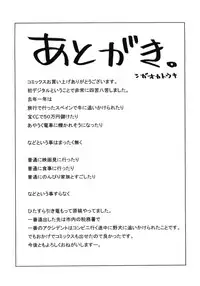 あとがき。
コミックスお買い上げありがとうございます。
初デジタルということで非常に四苦八苦しました。
去年一年は
旅行で行ったスペインで牛に追いかけられたり
宝くじで50万円儲けたり
あやうく電車に轢かれそうになったり
などという事はまったく無く
普通に映画見に行ったり
普通に食事に行ったり
普通にのんびり家族とすごしたり
などという事すらなく
ひたすら引き篭もって原稿やってました。
一番遠出した先は市内の税務署で
一番のアクシデントはコンビニ行く途中に野犬に追いかけられたことです。
でもおかげでコミックスも出せたので良かったです。
今後ともよろしくおねがいします。